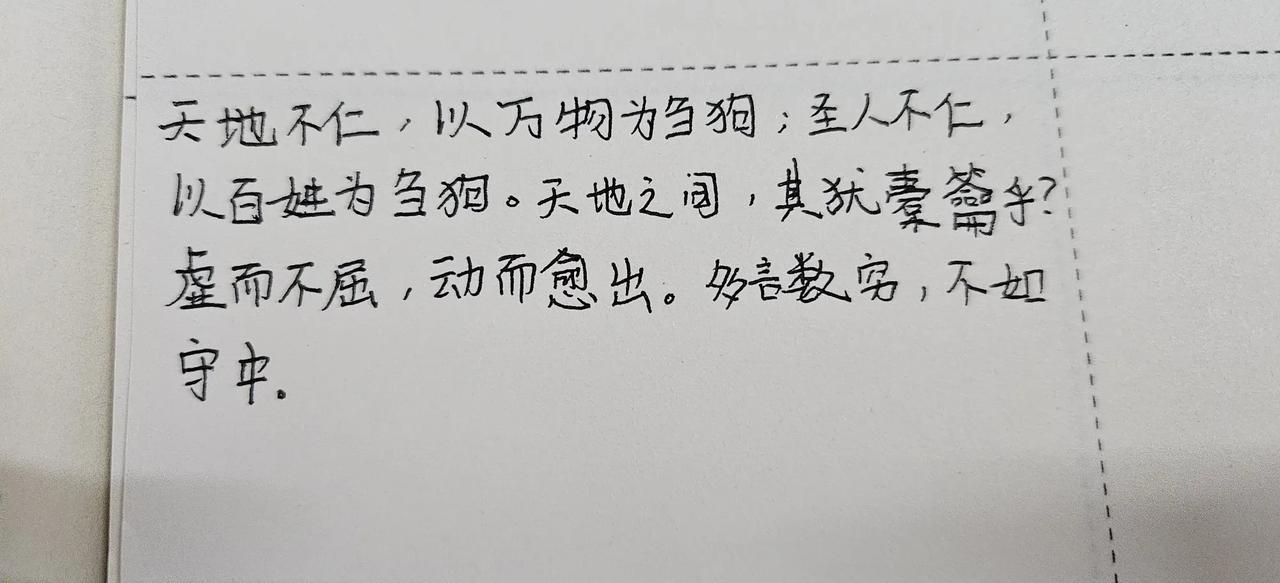 天地不仁，以万物为刍狗；圣人不仁，
以百姓为刍狗。天地之间，其犹橐籥乎？
虚而不屈，动而愈出。多言数穷，不如
守中。